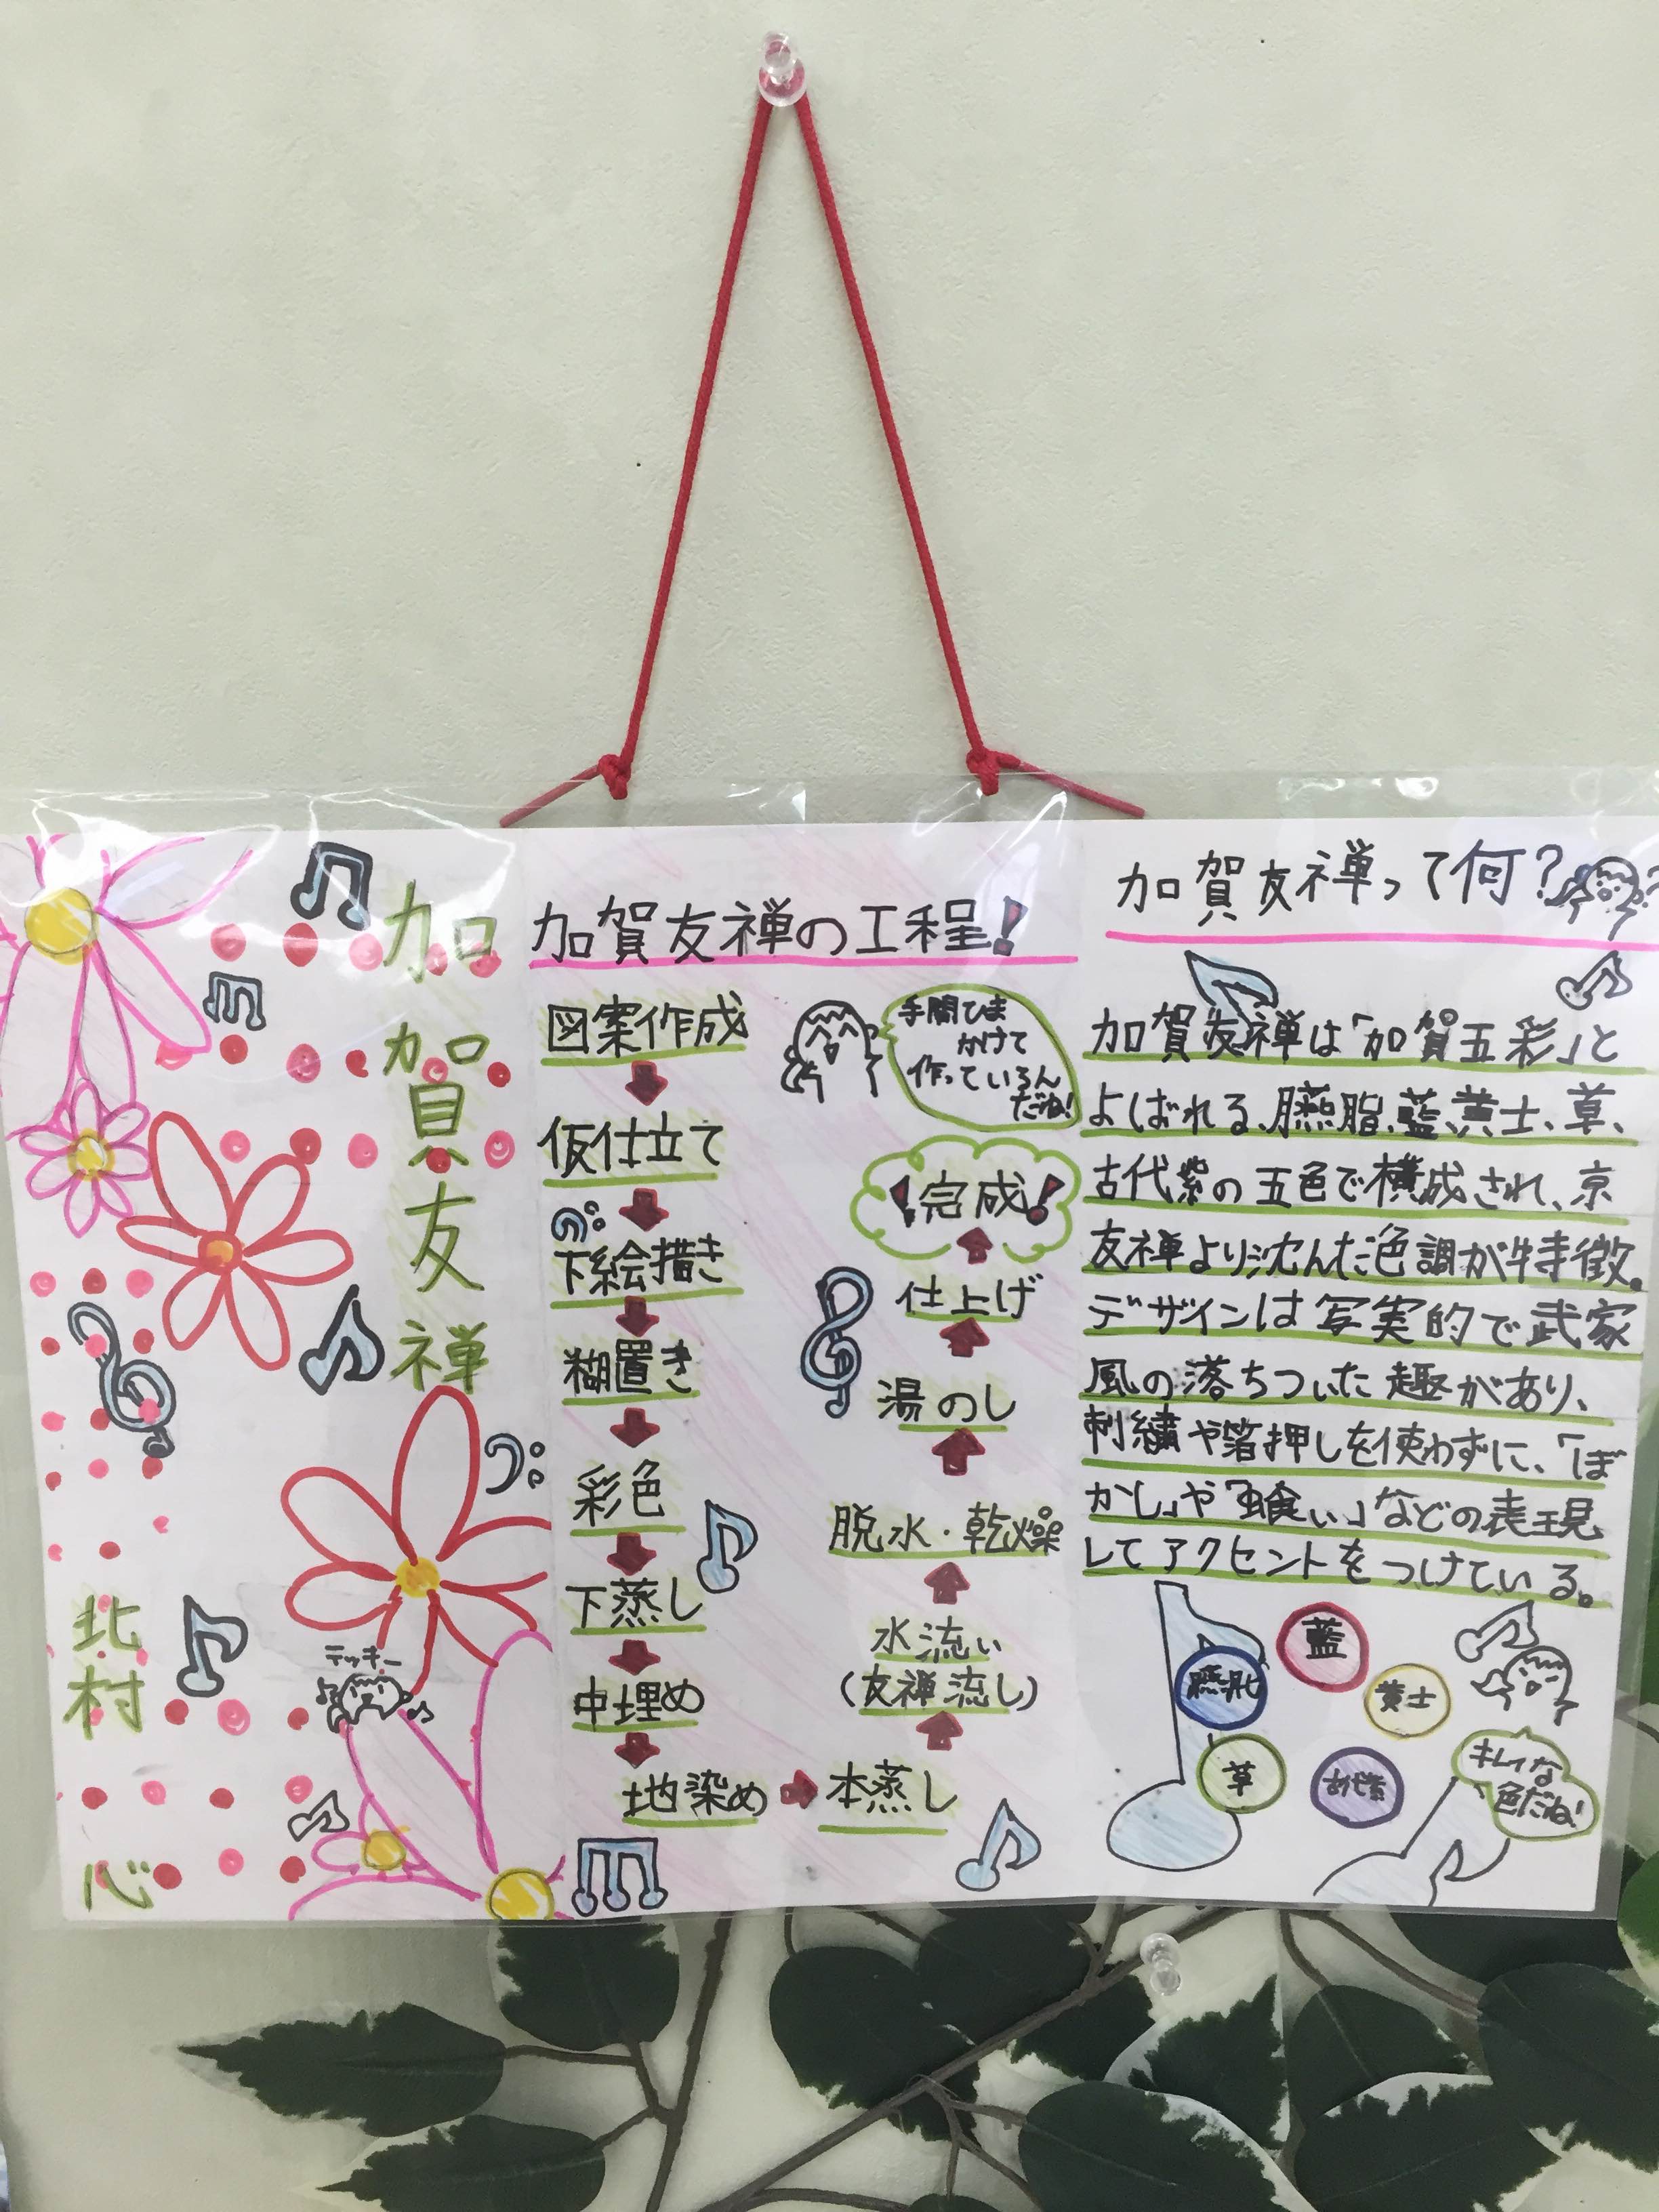 加賀友禅
北村 心
テッキー
加賀友禅の工程!
図案作成
仮仕立て
下絵描き
糊置き
彩色
下蒸し
中埋め
地染め
本蒸し
水流い
(友禅流し)
脱水・乾燥
湯のし
仕上げ
!完成!
手間ひま
かけて
作っているん
だね!
加賀友禅って何?
加賀友禅は「加賀五彩」と
よばれる、臙脂、藍、黄土、草、
古代紫の五色で構成され、京
友禅より沈んだ色調が特徴。
デザインは写実的で武家
風の落ちついた趣があり、
刺繍や箔押しを使わずに、「ぼ
かし」や「虫食い」などの表現
してアクセントをつけている。
藍
臙脂
黄土
草
古代紫
キレイな
色だね!